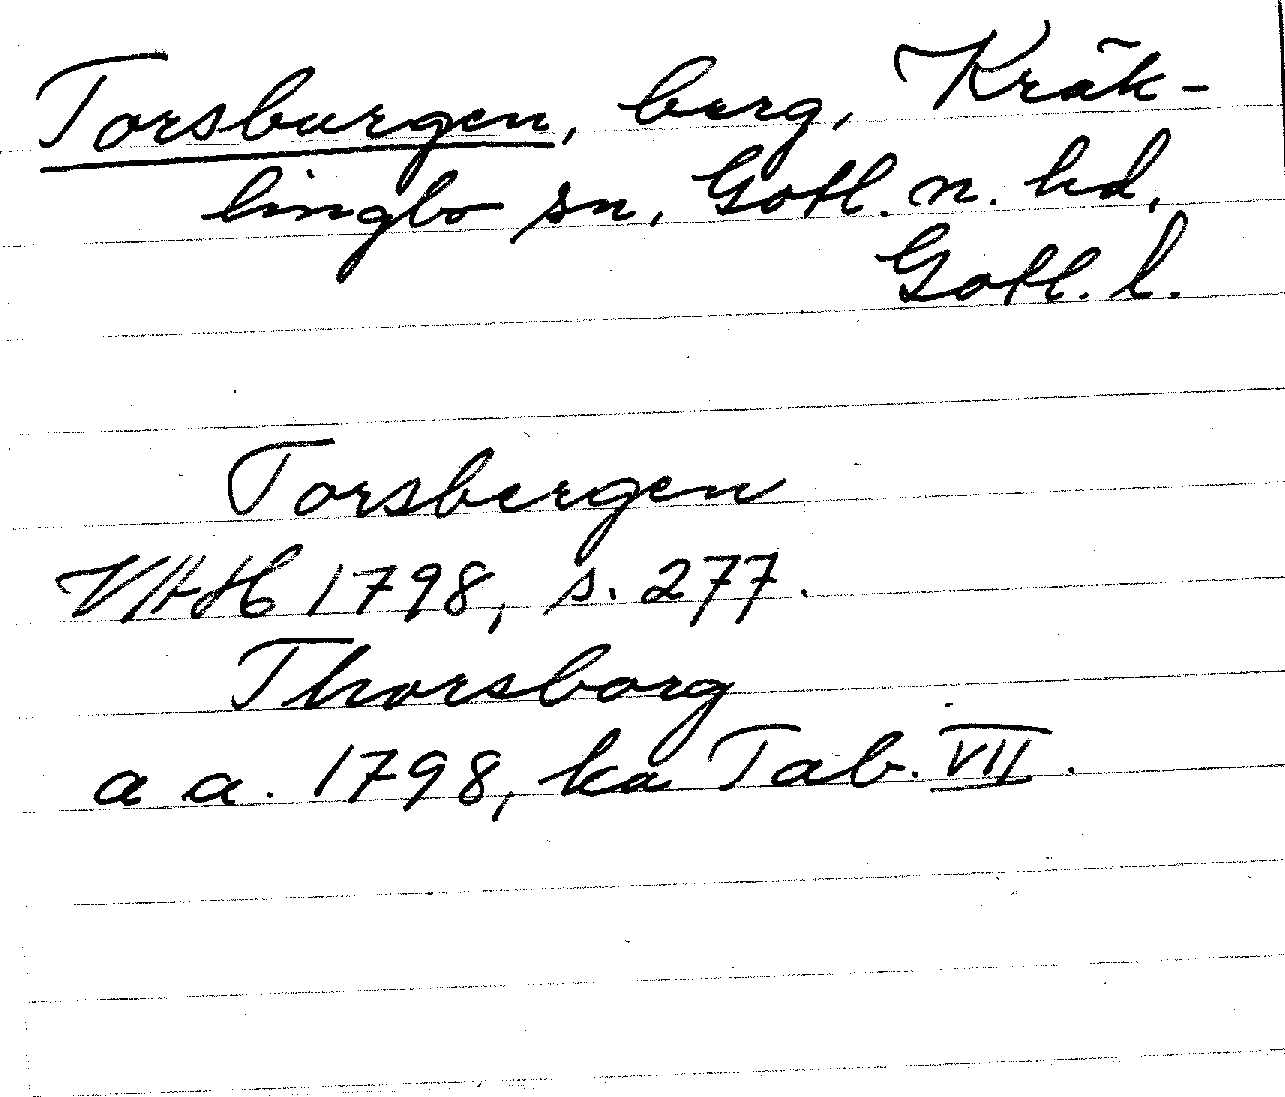 Torsburgen, berg, Kräk-
lingbo sn, Gotl. n. hd,
Gotl. l.
Torsbergen
VAH 1798, s. 277.
Thorsborg
a a. 1798, ka Tab. VII.